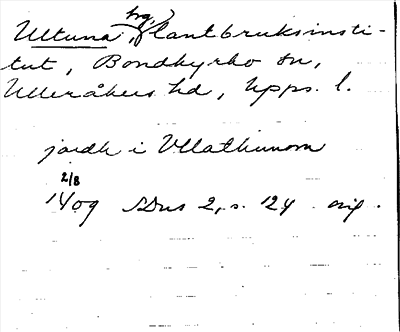 hg.
Ultuna, lantbruksinsti-
tut, Bondkyrko sn,
Ulleråkers hd, Upps. l.
jordh i Vllathunom
2/8
1409 SDns 2, s. 124 orig.